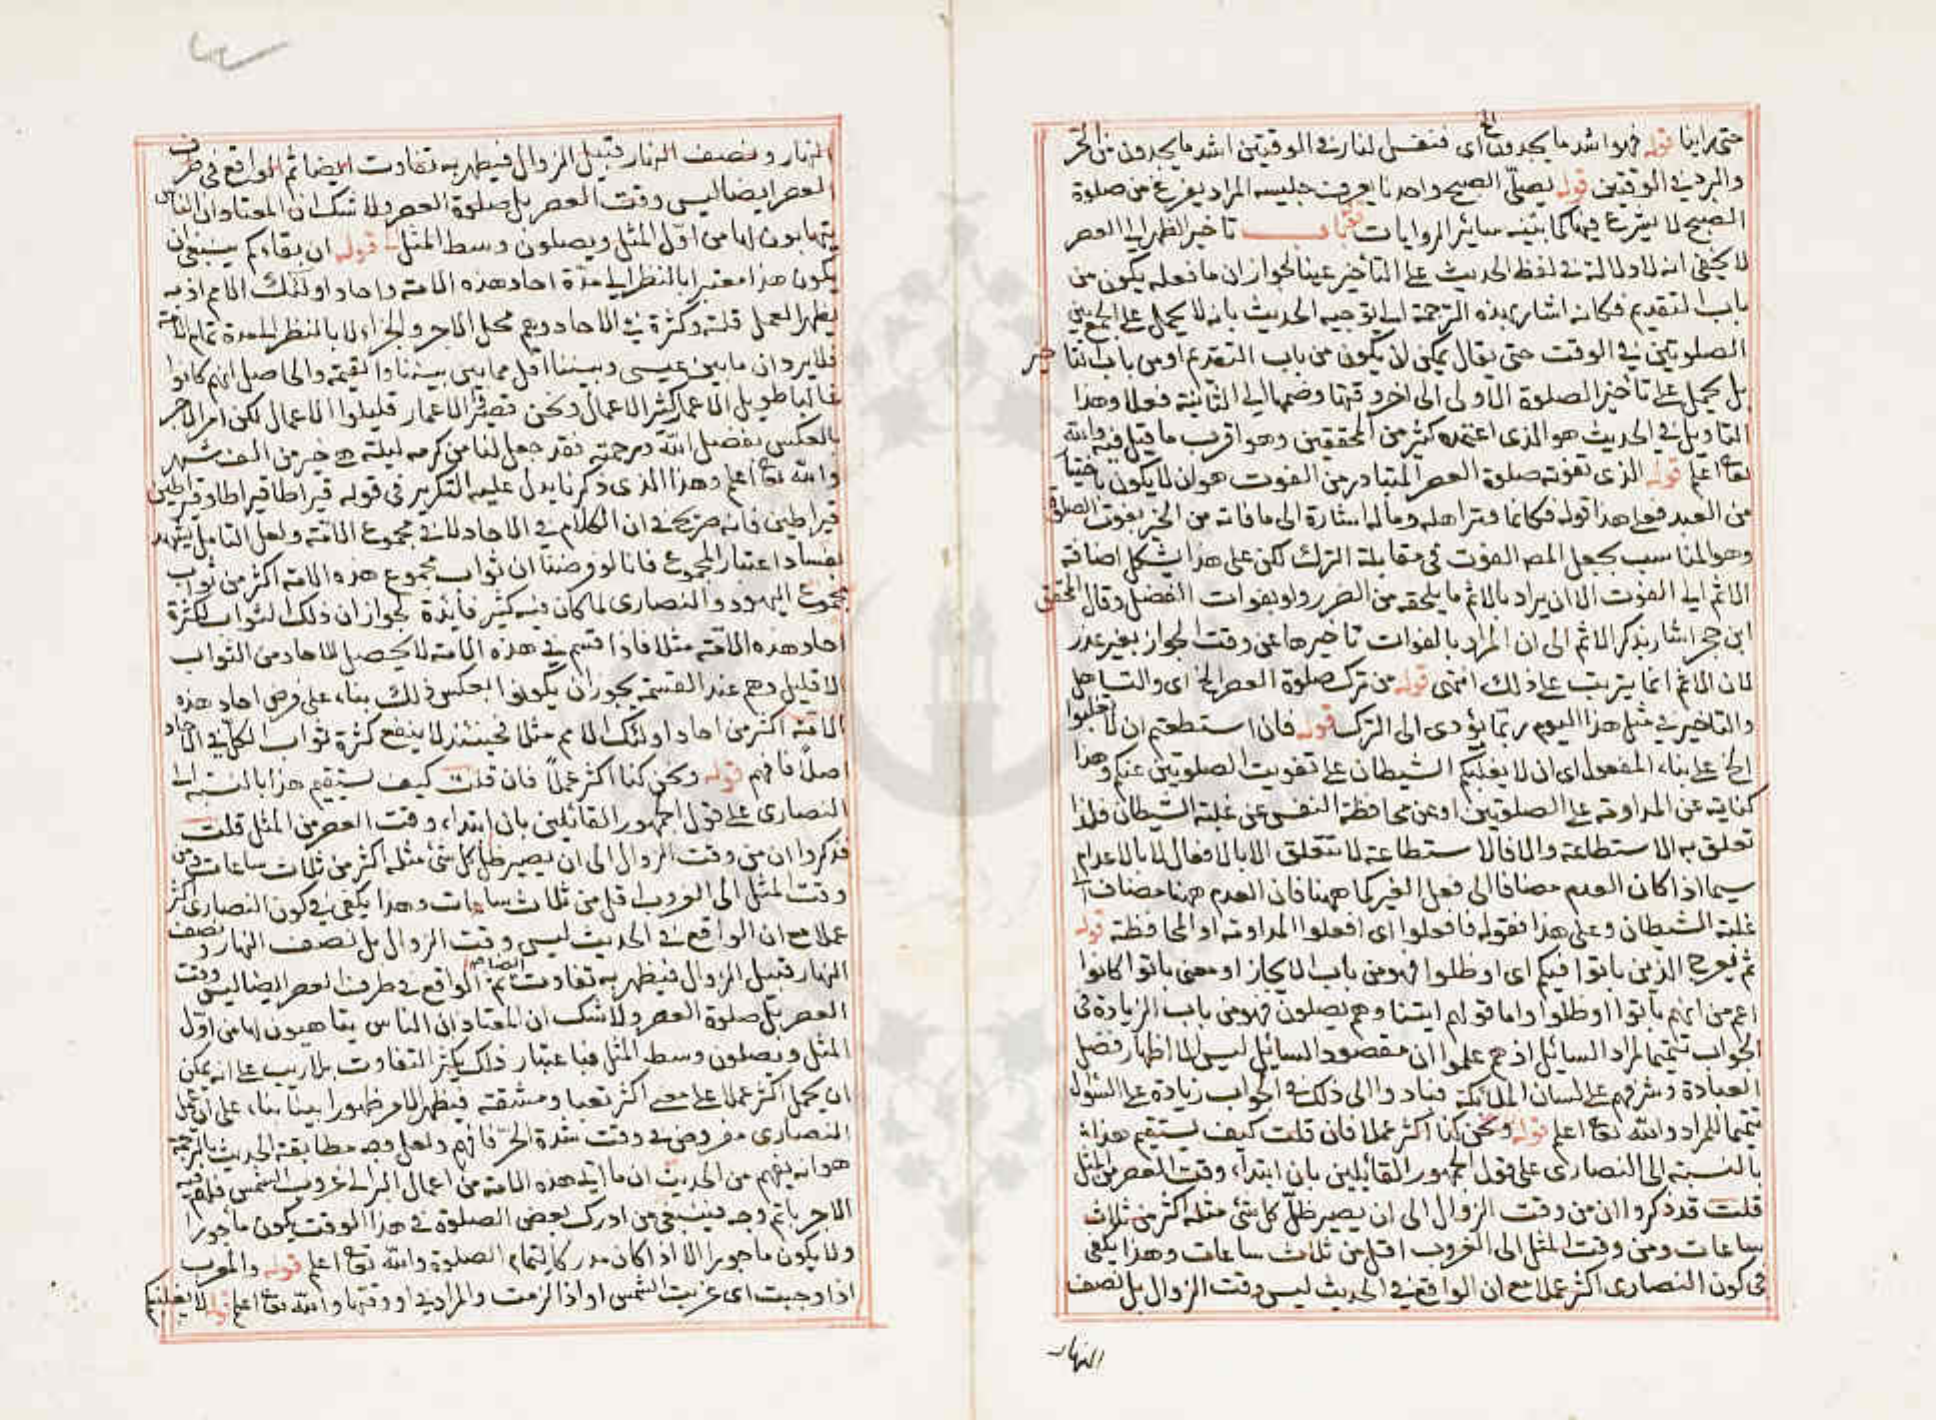 حتى راينا قوله فهو اشد ما يجدون الخ اى فنفس لنار فى الوقتين اشد ما يجدون من الحر
والبرد فى الوقتين قوله يصلى الصبح واحدنا يعرف جليسه المراد يفرغ من صلوة
الصبح لا يشرع فيها كما بينه سائر الروايات باب تاخير الظهر الى العصر
لا يخفى انه لا دلالة فى لفظ الحديث على التأخير عينا لجواز ان ما فعله يكون من
باب التقديم فكانه اشار بهذه الترجمة الى توجيه الحديث بانه لا يحمل على الجمع بين
الصلوتين فى الوقت حتى يقال يمكن ان يكون من باب التقديم او من باب التاخير
بل يحمل على تأخير الصلوة الاولى الى اخر وقتها وضمها الى الثانية فعلا وهذا
التاويل فى الحديث هو الذى اعتمده كثير من المحققين وهو اقرب ما قيل فيه والله
تعا اعلم قوله الذى تفوته صلوة العصر المتبادر من الفوت هو ان لا يكون باختيار
من العبد فعلى هذا قوله فكانما وتر اهله وماله اشارة الى ما فاته من الخير بفوت الصلوة
وهو المناسب بجعل المص الفوت فى مقابلة الترك لكن على هذا يشكل اضافة
الاثم الى الفوت الا ان يراد بالاثم ما يلحقه من الضرر ولو بفوات الفضل وقال المحقق
ابن حجر اشار بذكر الاثم الى ان المراد بالفوات تاخيرها عن وقت الجواز بغير عذر
لان الاثم انما يترتب على ذلك انتهى قوله من ترك صلوة العصر الخ اى والتساهل
والتاخير فى مثل هذا اليوم ربما يؤدى الى الترك قوله فان استطعتم ان لا تغلبوا
الخ على بناء المفعول اى ان لا يغلبكم الشيطان على تفويت الصلوتين عنكم وهذا
كناية عن المداومة على الصلوتين او عن محافظة النفس عن غلبة الشيطان فلذا
تعلق به الاستطاعة والا فالاستطاعة لا تتعلق الا بالافعال لا بالاعدام
سيما اذا كان العدم مضافا الى فعل الغير كما ههنا فان العدم ههنا مضاف الى
غلبة الشيطان وعلى هذا فقوله فافعلوا اى افعلوا المداومة او المحافظة قوله
ثم يعرج الذين باتوا فيكم اى او ظلوا فهو من باب الايجاز او معنى باتوا كانوا
اعم من انهم باتوا او ظلوا واما قولهم اتينا وهم يصلون فهو من باب الزيادة فى
الجواب تتميما لمراد السائل اذ هم علموا ان مقصود السائل ليس الا اظهار فضل
العبادة وشرفهم على لسان الملائكة فبادوا الى ذلك فى الجواب زيادة على السؤال
تتميما للمراد والله تعا اعلم قوله ونحن كنا اكثر عملا فان قلت كيف يستقيم هذا
بالنسبة الى النصارى على قول الجمهور القائلين بان ابتداء وقت العصر من المثل
قلت قد ذكروا ان من وقت الزوال الى ان يصير ظل كل شئ مثله اكثر من ثلاث
ساعات ومن وقت المثل الى الغروب اقل من ثلاث ساعات وهذا يكفى
فى كون النصارى اكثر عملا مع ان الواقع فى الحديث ليس وقت الزوال بل نصف
النهار
النهار ونصف النهار قبيل الزوال فيظهر به تفاوت ايضا ثم الواقع فى طرف
العصر ايضا ليس وقت العصر بل صلوة العصر ولا شك ان المعتاد ان الناس
يتهيابون لها من اول المثل ويصلون وسط المثل قوله ان بقاءكم ينبغى ان
يكون هذا معتبرا بالنظر الى مدة احاد هذه الامة واحاد اولئك الامم اذ به
يظهر العمل قلته وكثرة فى الاحاد وهم محل الاجر والجزاء لا بالنظر الى مدة تمام الامة
فلا يرد ان ما بين عيسى وبيننا اقل مما بين بيننا والقيمة والحاصل انهم كانوا
غالبا طويل الاعمار كثير الاعمال ونحن قصير الاعمار قليلوا الاعمال لكن امر الاجر
بالعكس بفضل الله ورحمته فقد جعل لنا من كرمه ليلة هى خير من الف شهر
والله تعا اعلم وهذا الذى ذكرنا يدل عليه التكرير فى قوله قيراطا قيراطا وقيراطين
قيراطين فانه صريح فى ان الكلام فى الاحاد لا فى مجموع الامة ولعل التامل يشهد
بفساد اعتبار المجموع فانا لو فرضنا ان ثواب مجموع هذه الامة اكثر من ثواب
مجموع اليهود والنصارى لما كان فيه كثير فائدة لجواز ان ذلك الثواب لكثرة
احاد هذه الامة مثلا فاذا قسم فى هذه الامة لا يحصل للاحاد من الثواب
الا قليل وهم عند القسمة يجوز ان يكونوا بعكس ذلك بناء على فرض احاد هذه
الامة اكثر من احاد اولئك الامم مثلا فحينئذ لا ينفع كثرة ثواب الكل فى الاحاد
اصلا فافهم قوله ونحن كنا اكثر عملا فان قلت كيف يستقيم هذا بالنسبة الى
النصارى على قول الجمهور القائلين بان ابتداء وقت العصر من المثل قلت
قد ذكروا ان من وقت الزوال الى ان يصير ظل كل شئ مثله اكثر من ثلاث ساعات ومن
وقت المثل الى الغروب اقل من ثلاث ساعات وهذا يكفى فى كون النصارى اكثر
عملا مع ان الواقع فى الحديث ليس وقت الزوال بل نصف النهار ونصف
النهار قبيل الزوال فيظهر به تفاوت ايضا ثم الواقع فى طرف العصر ايضا ليس وقت
العصر بل صلوة العصر ولا شك ان المعتاد ان الناس يتاهبون لها من اول
المثل ويصلون وسط المثل فباعتبار ذلك يكثر التفاوت بلا ريب على انه يمكن
ان يحمل اكثر عملا على معنى اكثر تعبا ومشقة فيظهر الامر ظهورا بينا بناء على ان عمل
النصارى مفروض فى وقت شدة الحر فافهم ولعل وجه مطابقة الحديث بالترجمة
هو انه يفهم من الحديث ان ما اتى هذه الامة من اعمال البر الى غروب الشمس فلهم فيه
الاجر باتم وجه فينبغى من ادرك بعض الصلوة فى هذا الوقت يكون مأجورا
ولا يكون ماجورا الا اذا كان مدركا لتمام الصلوة والله تعا اعلم قوله والمغرب
اذا وجبت اى غربت الشمس او اذا لزمت والمراد فى اول وقتها والله تعا اعلم قوله لا يغلبنكم